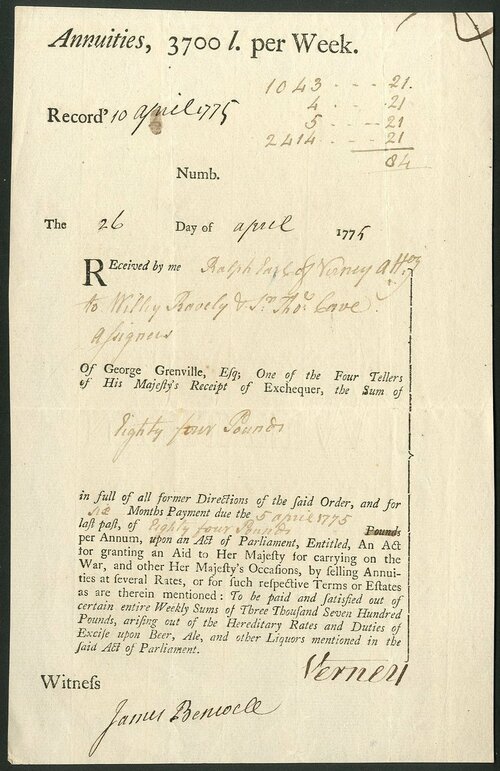 Annuities, 3700 l. per Week.
1043 - - - 21.
4 - - - 21
Record' 10 april 1775
5 - - - 21
2414 - - - 21
84
Numb.
The 26 Day of april 1775
REceived by me Ralph Earl of Verney Attoy
to Willey Ravely & Sr. Thos. Cave
Aſsignees
Of George Grenville, Eſq; One of the Four Tellers
of His Majeſty's Receipt of Exchequer, the Sum of
Eighty four Pounds
in full of all former Directions of the ſaid Order, and for
six Months Payment due the 5 april 1775
laſt paſt, of Eighty four Pounds Pounds
per Annum, upon an Act of Parliament, Entitled, An Act
for granting an Aid to Her Majeſty for carrying on the
War, and other Her Majeſty's Occaſions, by ſelling Annui-
ties at ſeveral Rates, or for ſuch reſpective Terms or Eſtates
as are therein mentioned: To be paid and ſatisfied out of
certain entire Weekly Sums of Three Thouſand Seven Hundred
Pounds, ariſing out of the Hereditary Rates and Duties of
Exciſe upon Beer, Ale, and other Liquors mentioned in the
ſaid Act of Parliament.
Verney
Witneſs
James Benwell